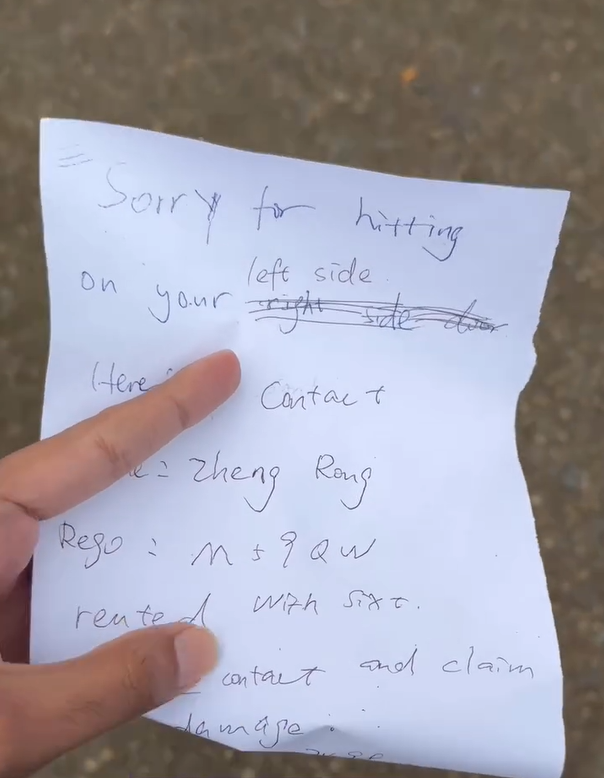 Sorry for hitting
on your left side
Here Contact
Zheng Rong
Rego =
rented with sixt.
contact and claim
damage :